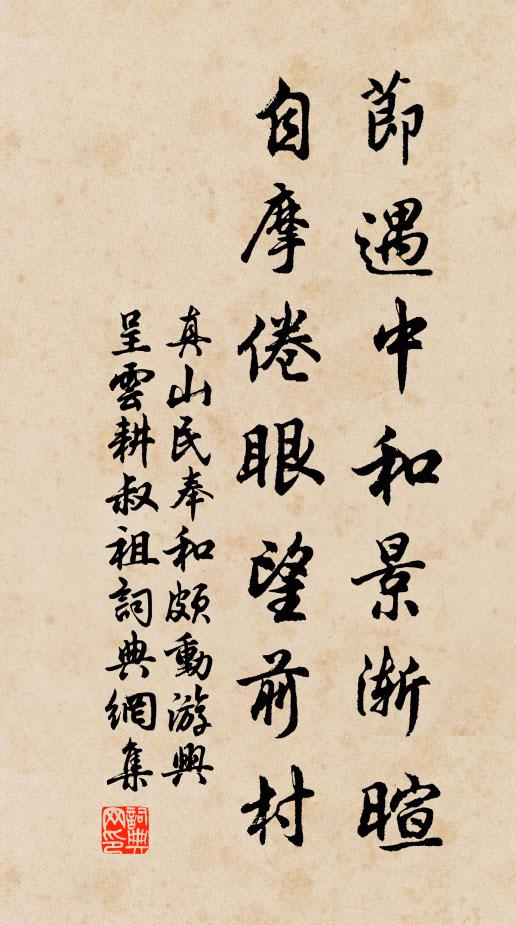 節遇中和景漸暄
自摩倦眼望前村
真山民奉和頗動游興
呈雲耕叔祖詞典網集
詞典网印